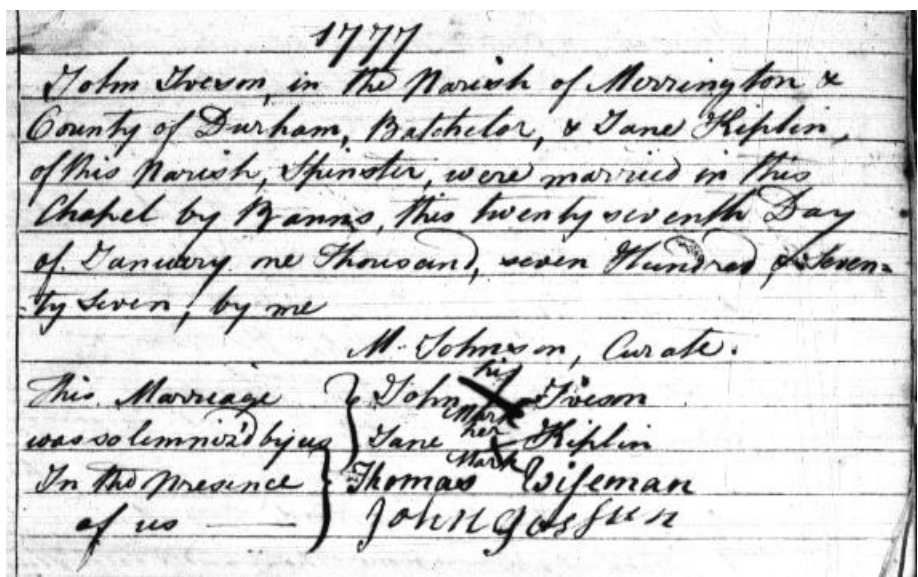 1777
John Iveson, in the Parish of Merrington &
County of Durham, Batchelor, & Jane Kiplin,
of this Parish, Spinster, were married in this
Chapel by Banns, this twenty seventh Day
of January one Thousand, seven Hundred, & Seven=
ty Seven, by me
M. Johnson, Curate.
This Marriage John his Mark Iveson
was solemniz'd by us Jane her Mark Kiplin
In the Presence Thomas Wiseman
of us John